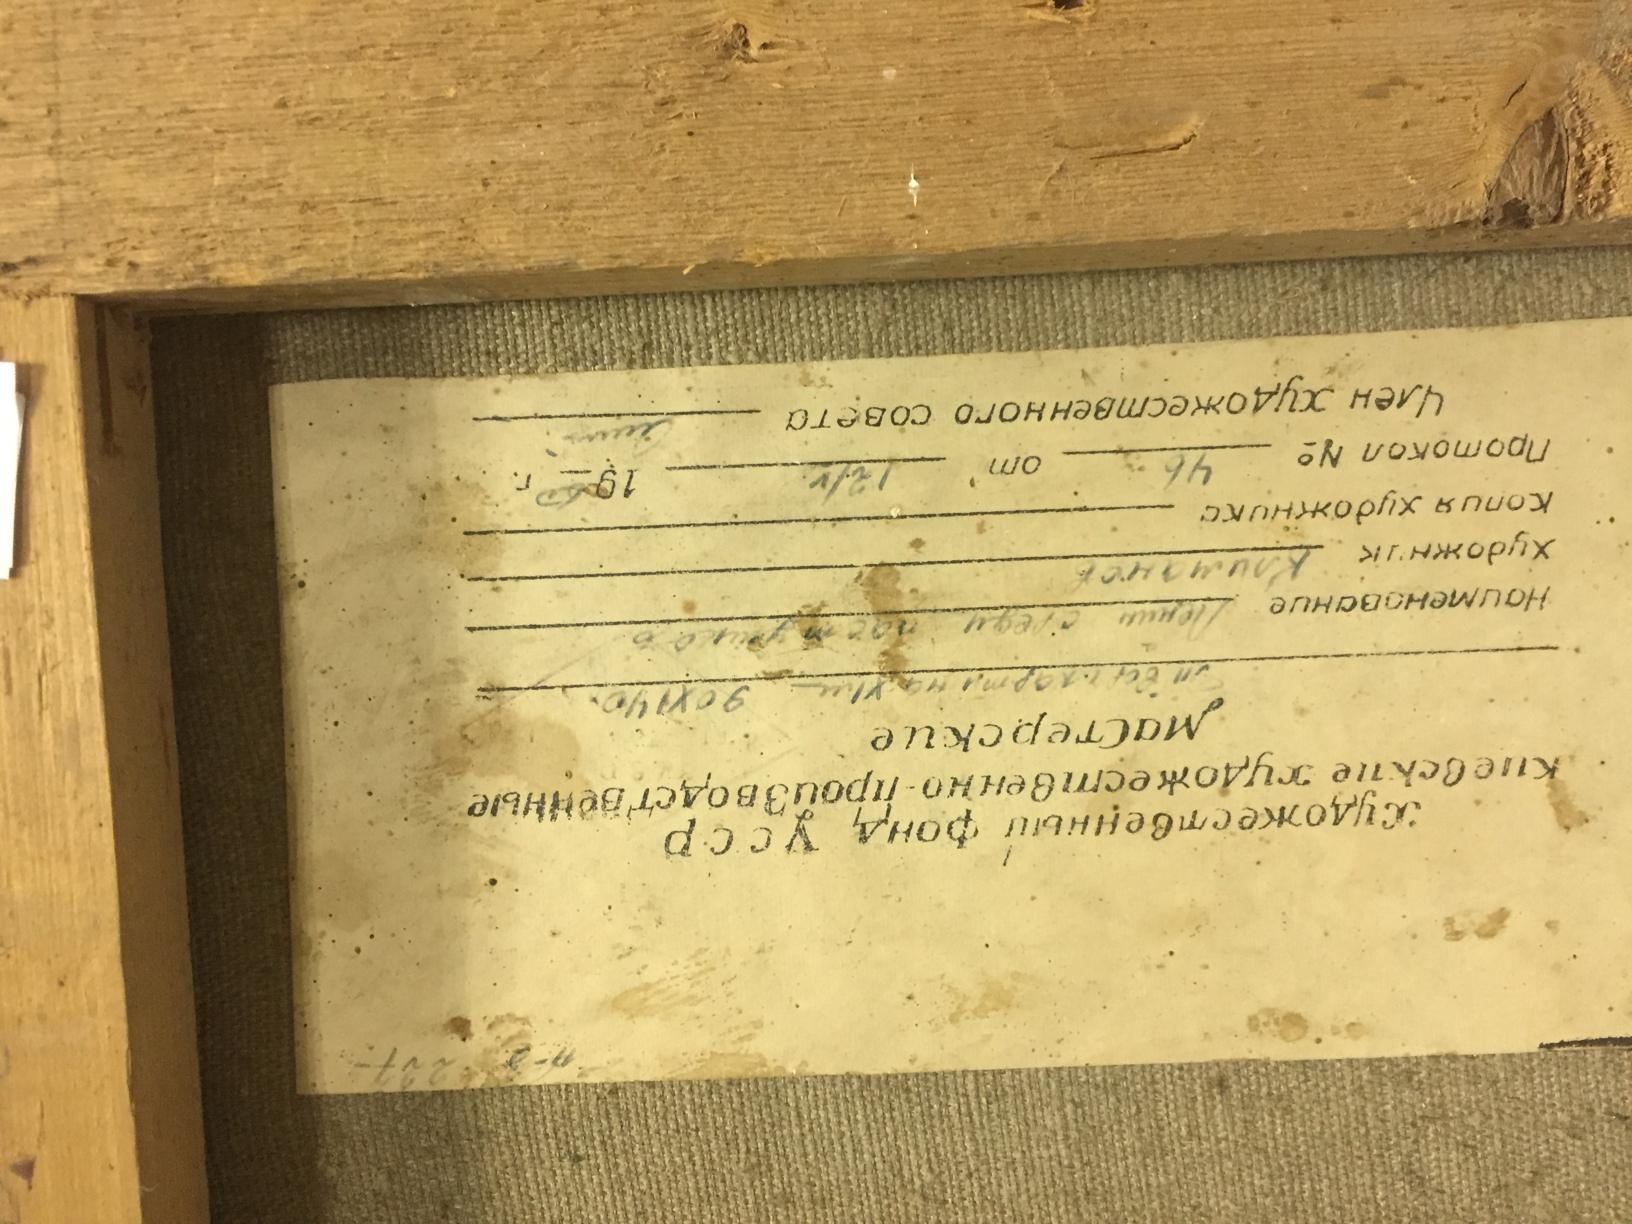 Художественный фонд УССР
Киевские художественно-производственные
мастерские
картина х/м 90х140.
Наименование Ленин среди
Художник Климанов
Копия художника
Протокол № 46 от 12/V 1960 г.
Член художественного совета